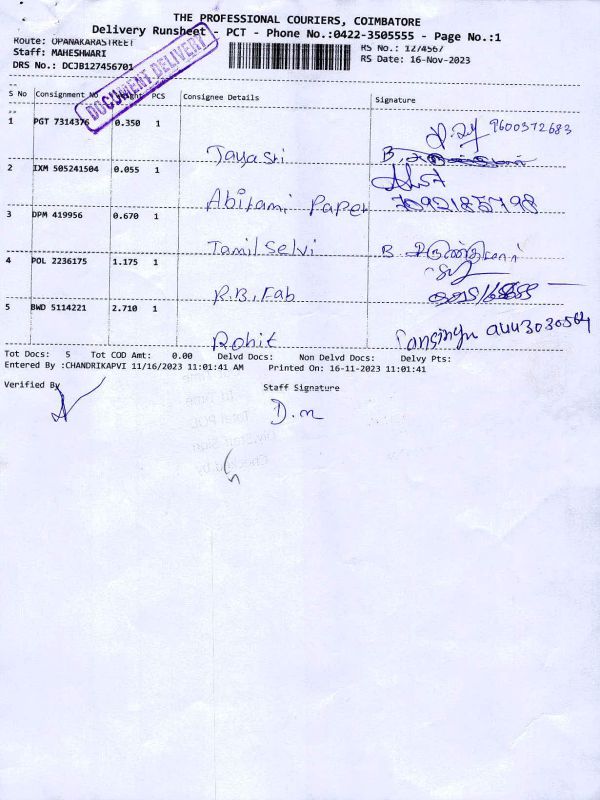 THE PROFESSIONAL COURIERS, COIMBATORE
Delivery Runsheet - PCT - Phone No.:0422-3505555 - Page No.:1
Route: OPANAKARASTREET
RS No.: 1274567
Staff: MAHESHWARI
RS Date: 16-Nov-2023
DRS No.: DCJB127456701
DOCUMENT DELIVERY
S No Consignment No Weight PCS Consignee Details Signature
1 PGT 7314376 0.350 1
9600372683
Jayasri
B.
2 IXM 505241504 0.055 1
Abitami Paper 7092185798
3 DPM 419956 0.670 1
Tamil Selvi B
4 POL 2236175 1.175 1
R.B. Fab
5 BWD 5114221 2.710 1
Rohit
Tot Docs: 5 Tot COD Amt: 0.00 Delvd Docs: Non Delvd Docs: Delvy Pts:
Entered By :CHANDRIKAPVI 11/16/2023 11:01:41 AM Printed On: 16-11-2023 11:01:41
Verified By
Staff Signature
D.m